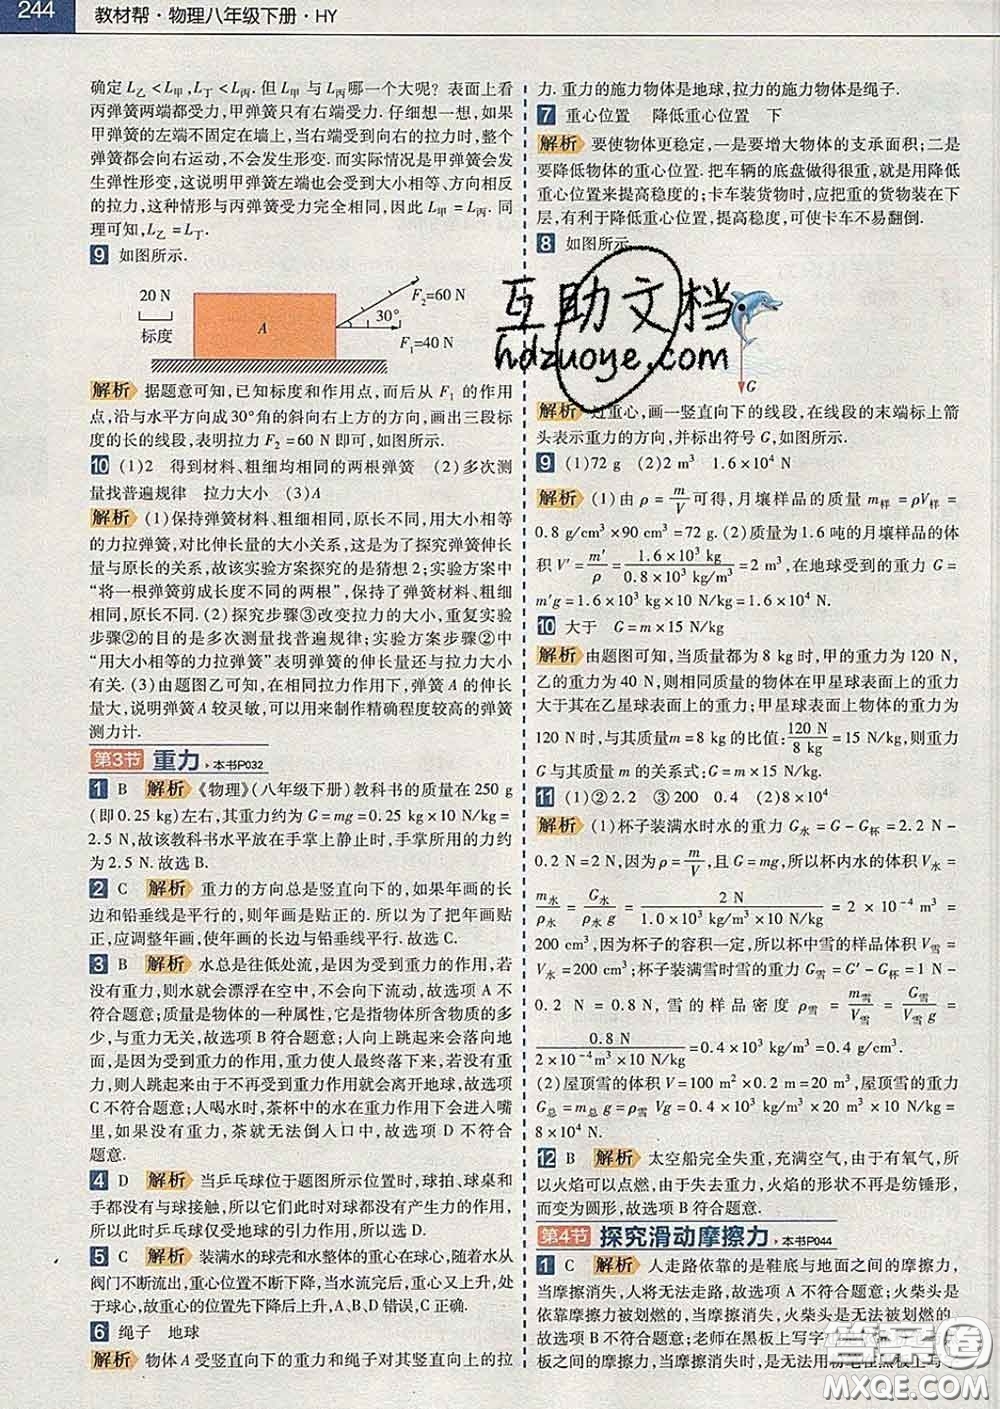 244 教材帮·物理八年级下册·HY
确定 L乙<L甲,L丁<L丙. 但 L甲 与 L丙哪一个大呢？表面上看
丙弹簧两端都受力,甲弹簧只有右端受力. 仔细想一想,如果
甲弹簧的左端不固定在墙上,当右端受到向右的拉力时,整个
弹簧都会向右运动,不会发生形变. 而实际情况是甲弹簧会发
生弹性形变,这说明甲弹簧左端也受到了大小相等、方向相反
的拉力,这种情形与丙弹簧受力完全相同,因此 L甲 = L丙. 同
理可知,L乙=L丁.
9 如图所示.
20 N
标度
A
F₂=60 N
30°
F₁=40 N
解析 据题意可知,已知标度和作用点,而后从 F₁ 的作用
点,沿与水平方向成30°角的斜向右上方的方向,画出三段标
度的长的线段,表明拉力 F₂=60 N即可,如图所示.
10 (1)2 得到材料、粗细均相同的两根弹簧 (2)多次测
量找普遍规律 拉力大小 (3)A
解析 (1)保持弹簧材料、粗细相同,原长不同,用大小相等
的力拉弹簧,对比伸长量的大小关系,这是为了探究弹簧伸长
量与原长的关系,故该实验方案探究的是猜想2;实验方案中
“将一根弹簧剪成长度不同的两根”,保持了弹簧材料、粗细
相同,原长不同. (2)探究步骤③改变拉力的大小,重复实验
步骤②的目的是多次测量找普遍规律;实验方案步骤②中
“用大小相等的力拉弹簧”表明弹簧的伸长量还与拉力大小
有关. (3)由题图乙可知,在相同拉力作用下,弹簧 A 的伸长
量大,说明弹簧A较灵敏,可以用来制作精确程度较高的弹簧
测力计.
第3节 重力 ▸本书P032
1 B 解析 《物理》(八年级下册)教科书的质量在250 g
(即0.25 kg)左右,受到的重力约为 G=mg=0.25 kg×10 N/kg=
2.5 N,故该教科书水平放在手掌上静止时,手掌所用的力约
为2.5 N. 故选B.
2 C 解析 重力的方向总是竖直向下的,如果年画的长
边和铅垂线是平行的,则年画是贴正的. 所以为了把年画贴
正,应调整年画,使年画的长边与铅垂线平行. 故选C.
3 B 解析 水总是往低处流,是因为受到重力的作用,若
没有重力,则水就会漂浮在空中,不会向下流动,故选项A不
符合题意;质量是物体的一种属性,它是指物体所含物质的多
少,与重力无关,故选项B符合题意;人向上跳起来会落向地
面,是因为受到重力的作用,重力使人最终落下来,若没有重
力,则人跳起来由于运动状态不变就会离开地球,故选项
C不符合题意;人喝水时,茶杯中的水在重力作用下会进入嘴
里,如果没有重力,茶就无法倒入口中,故选项D不符合
题意.
4 D 解析 当乒乓球位于题图所示位置时,球拍、球桌和
手都没有与球接触,所以它们此时对球都没有产生力的作用,
所以此时乒乓球仅受地球的引力作用. 故选D.
5 C 解析 装满水的球壳和水整体的重心在球心,随着水从
阀门不断流出,重心位置不断下降,当水流完后,球壳的重心还在
球心,故重心的位置先下降后上升,A、B、D错误,C正确.
6 绳子 地球
解析 物体A受竖直向下的重力和绳子对其竖直向上的拉
力. 重力的施力物体是地球,拉力的施力物体是绳子.
7 重心位置 降低重心位置 下
解析 要使物体更稳定,一是要增大物体的支承面积;二是
要降低物体的重心位置. 把车辆的底盘做得很重,就是用降低
重心位置来提高稳度的;卡车装货物时,应把重的货物装在下
层,有利于降低重心位置,提高稳度,可使卡车不易翻倒.
8 如图所示
G
互助文档
hdzuoye.com
解析 过重心,画一竖直向下的线段,在线段的末端标上箭
头表示重力的方向,并标出符号 G,如图所示.
9 (1)72 g (2)2 m³ 1.6×10⁴ N
解析 (1)由 ρ=m/V 可得,月壤样品的质量 m样=ρV样=
0.8 g/cm³×90 cm³=72 g. (2)质量为1.6吨的月壤样品的体
积 V′=m′/ρ=1.6×10³ kg/0.8×10³ kg/m³=2 m³,在地球受到的重力 G=
m′g=1.6×10³ kg×10 N/kg=1.6×10⁴ N.
10 大于 G=m×15 N/kg
解析 由题图可知,当质量都为8 kg时,甲的重力为120 N,
乙的重力为40 N,则相同质量的物体在甲星球表面上的重力
大于其在乙星球表面上的重力;甲星球物体上的重力为
120 N时,与其质量m=8 kg的比值:120 N/8 kg=15 N/kg,所以重力
G 与其质量 m 的关系式:G=m×15 N/kg.
11 (1)②2.2 ③200 0.4 (2)8×10⁴
解析 (1)杯子装满水时水的重力 G水=G-G杯=2.2 N-
0.2 N=2 N,因为 ρ=m/V,且 G=mg,所以杯内水的体积 V水=
m水/ρ水=G水/ρ水g=2 N/1.0×10³ kg/m³×10 N/kg=2×10⁻⁴ m³=
200 cm³,因为杯子的容积一定,所以杯中雪的样品体积 V雪=
V水=200 cm³;杯子装满雪时雪的重力 G雪=G′-G杯=1 N-
0.2 N=0.8 N,雪的样品密度 ρ雪=m雪/V雪=G雪/V雪g=
0.8 N/2×10⁻⁴ m³×10 N/kg=0.4×10³ kg/m³.
(2)屋顶雪的体积 V=100 m²×0.2 m=20 m³,屋顶雪的重力
G总=m总g=ρ雪Vg=0.4×10³ kg/m³×20 m³×10 N/kg=
8×10⁴ N.
12 B 解析 太空船完全失重,充满空气,由于有氧气,所
以火焰可以点燃,由于失去重力,火焰的形状不再是纺锤形,
而变为圆形,故选项B符合题意.
第4节 探究滑动摩擦力 ▸本书P044
1 C 解析 人走路依靠的是鞋底与地面之间的摩擦力,
当摩擦消失,人将无法走路,故选项A不符合题意;火柴头是
依靠摩擦力被划燃的,当摩擦消失,火柴头是无法被划燃的,
故选项B不符合题意;老师在黑板上写字
板之间的摩擦力,当摩擦消失时,是无法用粉笔在黑板上写
答案圈
MXQE.COM